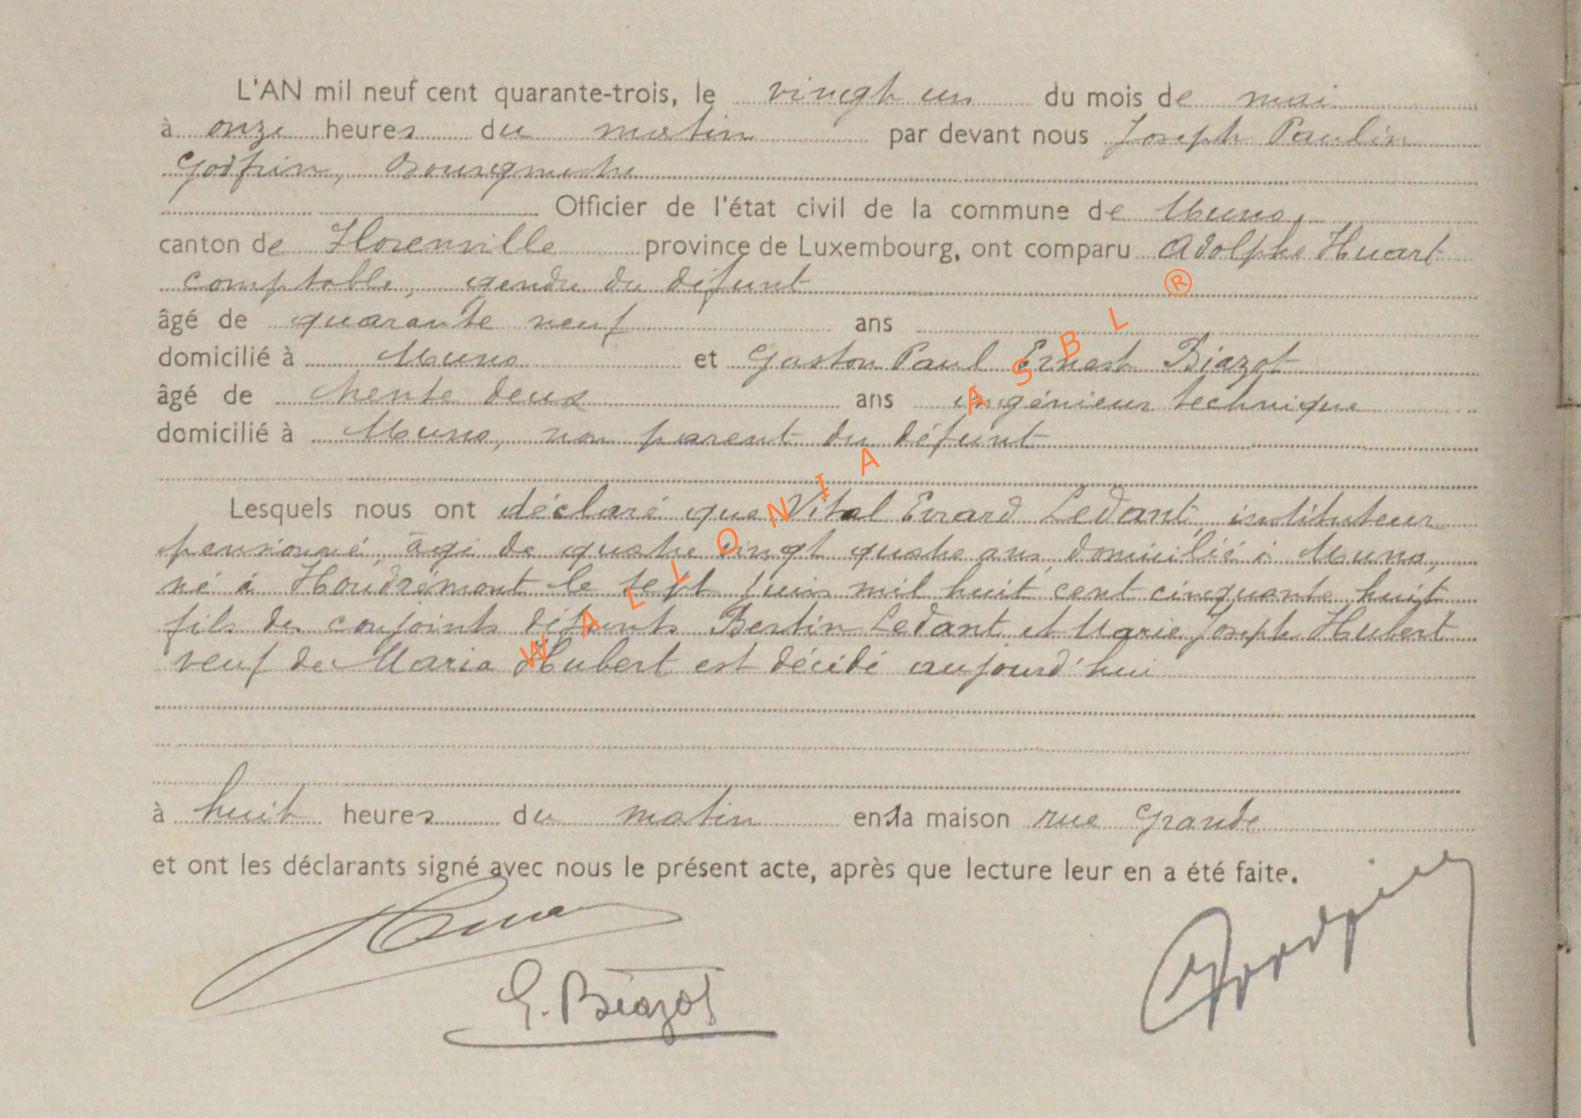 L'AN mil neuf cent quarante-trois, le vingt un du mois de mai
à onze heures du matin par devant nous Joseph Paulin
Godfrin, Bourgmestre
Officier de l'état civil de la commune de Muno,
canton de Florenville province de Luxembourg, ont comparu Adolphe Huart
comptable, gendre du défunt
âgé de quarante neuf ans
domicilié à Muno et Gaston Paul Ernest Biazot
âgé de trente deux ans ingénieur technique
domicilié à Muno, non parent du défunt
Lesquels nous ont déclaré que Vital Evrard Ledant, instituteur
pensionné, âgé de quatre vingt quatre ans, domicilié à Muno,
né à Houdremont le sept juin mil huit cent cinquante huit
fils des conjoints défunts Bertin Ledant et Marie Joseph Hubert
veuf de Maria Hubert est décédé aujourd'hui
à huit heures du matin en sa maison rue Grande
et ont les déclarants signé avec nous le présent acte, après que lecture leur en a été faite.
G. Biazot
WALLONIA ASBL ®